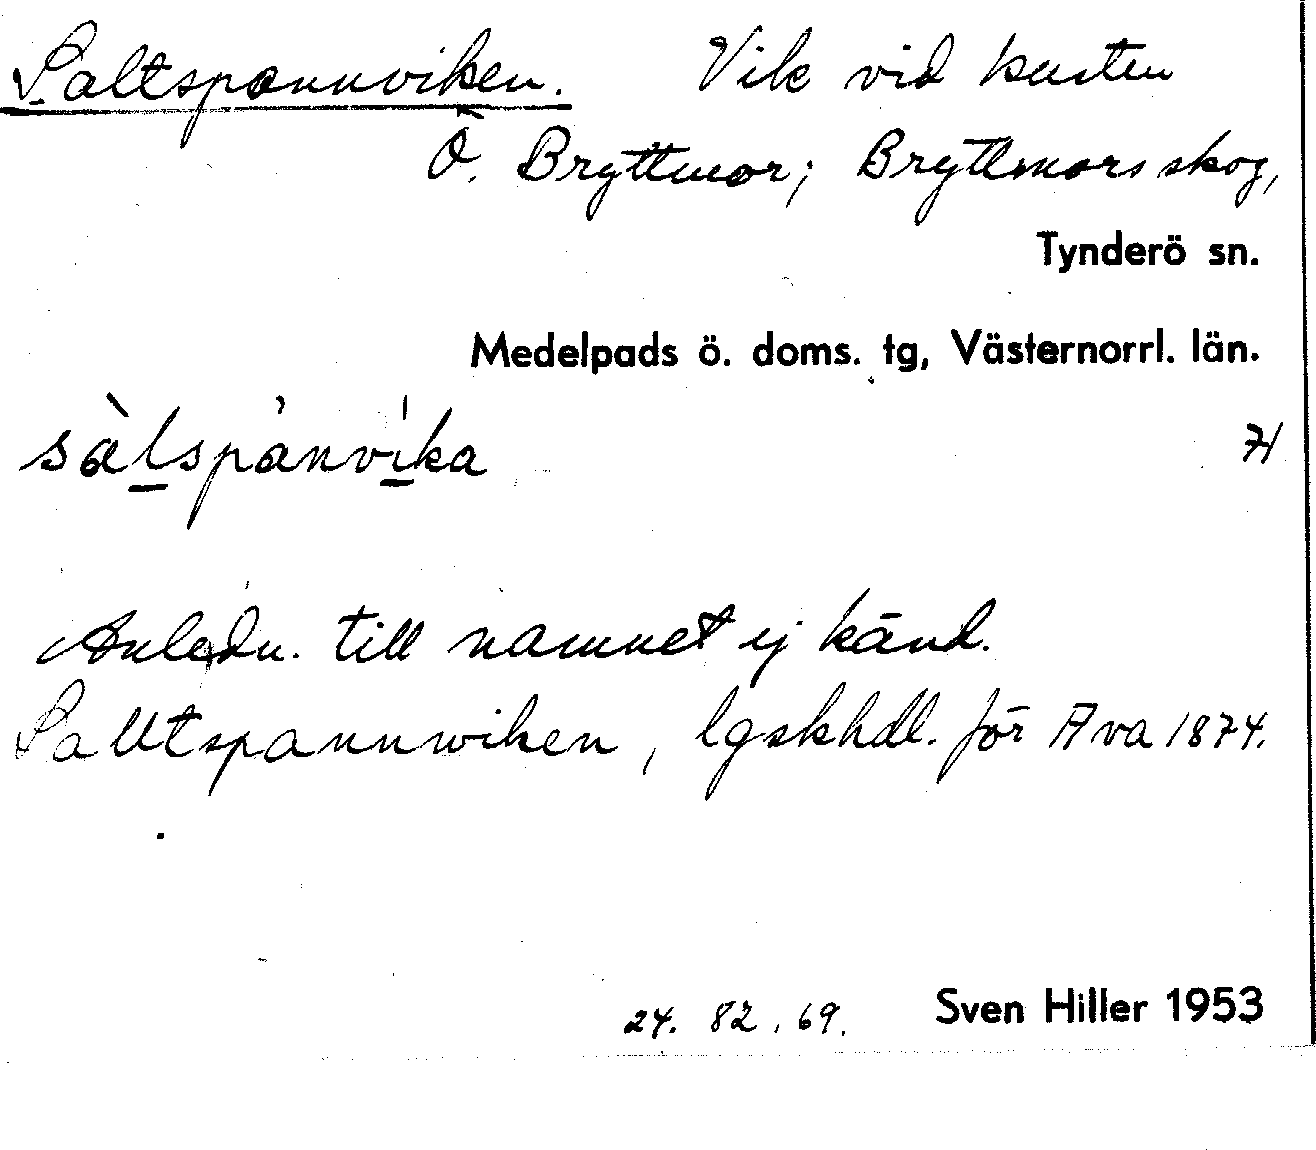 Saltspannviken. Vik vid kusten
Ö. Bryttmor; Bryttmors skog,
Tynderö sn.
Medelpads ö. doms. tg, Västernorrl. län.
sàlspànvíka
Anledn. till namnet ej känd.
Salltspannwiken, lgskhdl. för Ava 1874.
24. 82. 69. Sven Hiller 1953